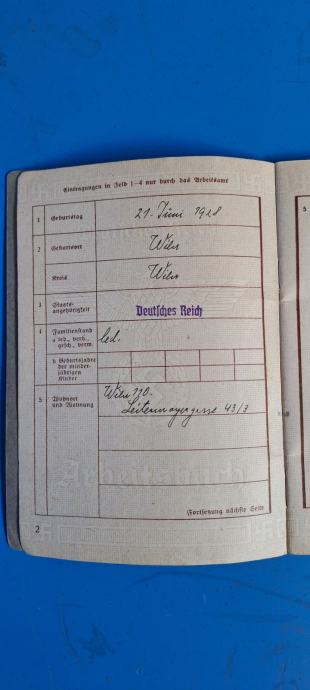 Eintragungen in Feld 1–4 nur durch das Arbeitsamt
1 Geburtstag 21. Juni 1928
2 Geburtsort Wien
Kreis Wien
3 Staats-
angehörigkeit Deutsches Reich
4 Familienstand
a led., verh., led.
gesch., verw.
b Geburtsjahre
der minder-
jährigen
Kinder
5 Wohnort Wien
und Wohnung Leitermayergasse 43/3
Arbeitsbuch
Fortsetzung nächste Seite
2
5